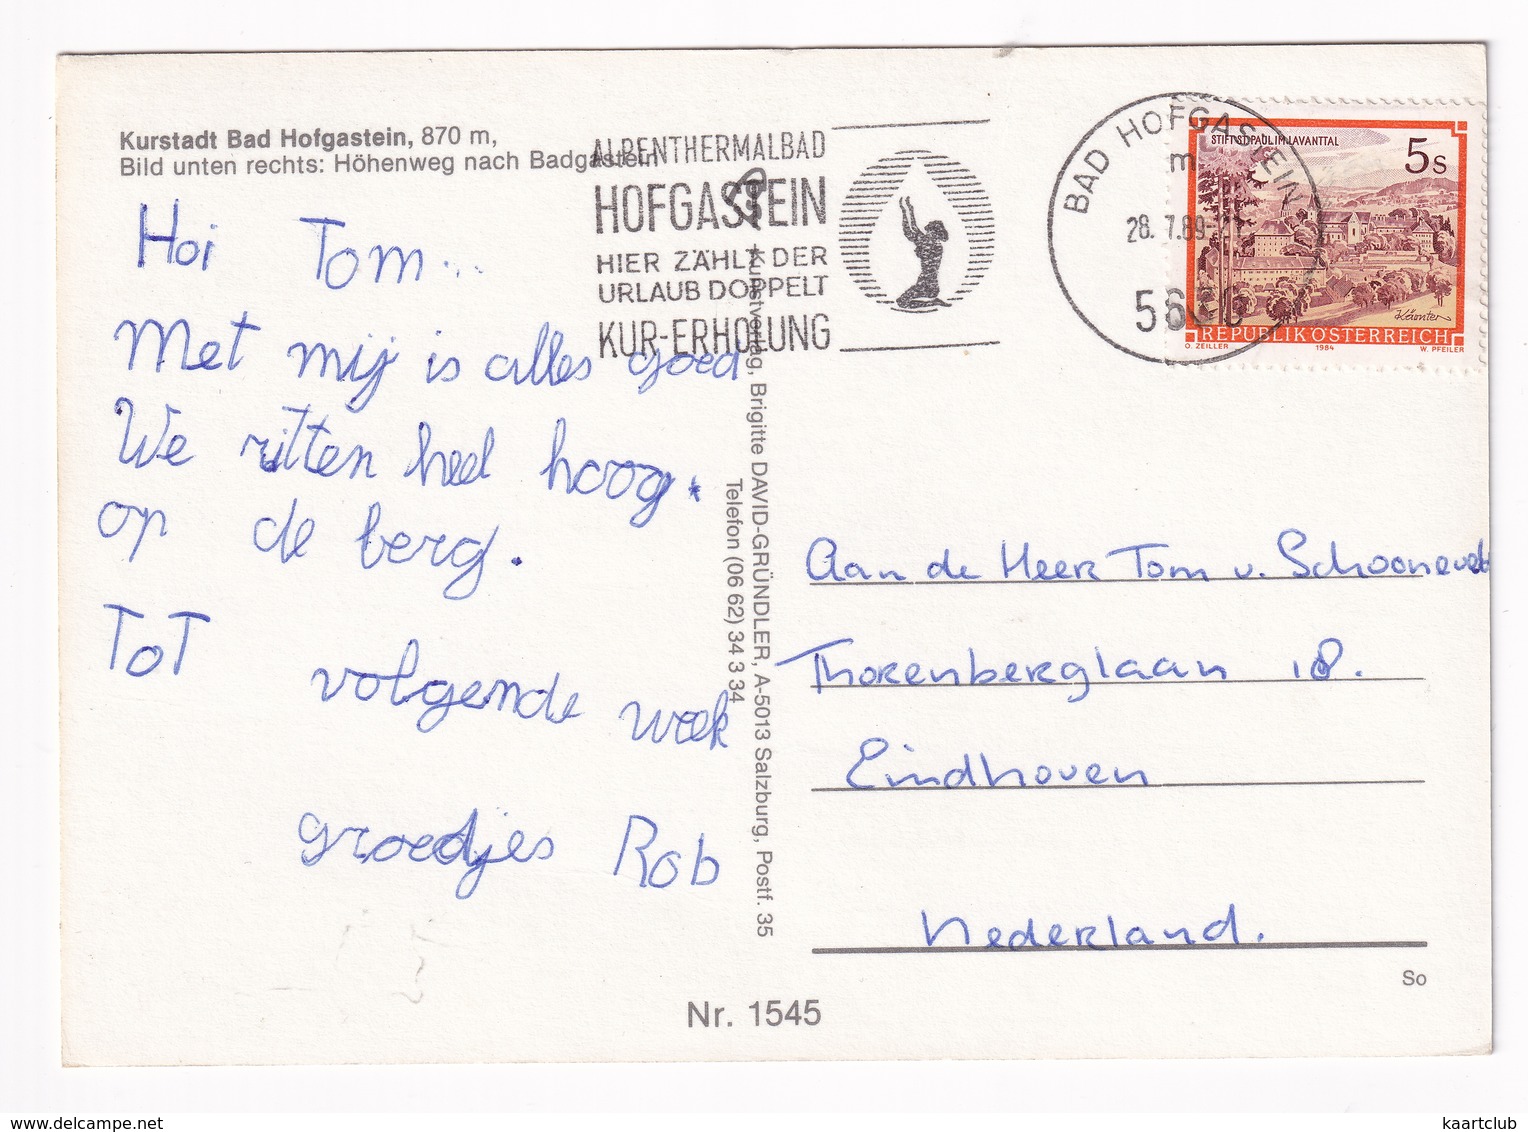 Kurstadt Bad Hofgastein, 870 m,
Bild unten rechts: Höhenweg nach Badgastein
ALPENTHERMALBAD
HOFGASTEIN
HIER ZÄHLT DER
URLAUB DOPPELT
KUR-ERHOLUNG
BAD HOFGASTEIN
m
28. 7.89-21
5630
STIFT ST. PAUL IM LAVANTTAL
5s
Kärnten
REPUBLIK ÖSTERREICH
O. ZEILLER 1984 W. PFEILER
Hoi Tom...
Met mij is alles goed
We zitten heel hoog.
op de berg.
Tot volgende week
groedjes Rob
Kunstverlag, Brigitte DAVID-GRÜNDLER, A-5013 Salzburg, Postf. 35
Telefon (06 62) 34 3 34
Aan de Heer Tom v. Schooneveld
Thorenberglaan 18.
Eindhoven
Nederland.
So
Nr. 1545
kaartclub
www.delcampe.net